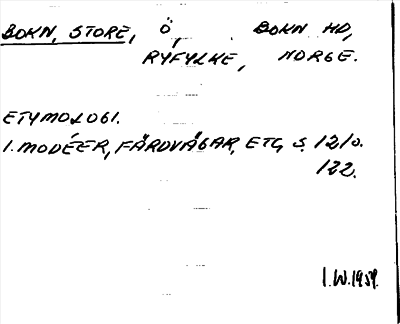 BOKN, STORE, Ö, BOKN HD,
RYFYLKE, NORGE.
ETYMOLOGI.
I. MODÉER, FÄRDVÄGAR, ETC, S. 121 o.
122.
I.W. 1959.